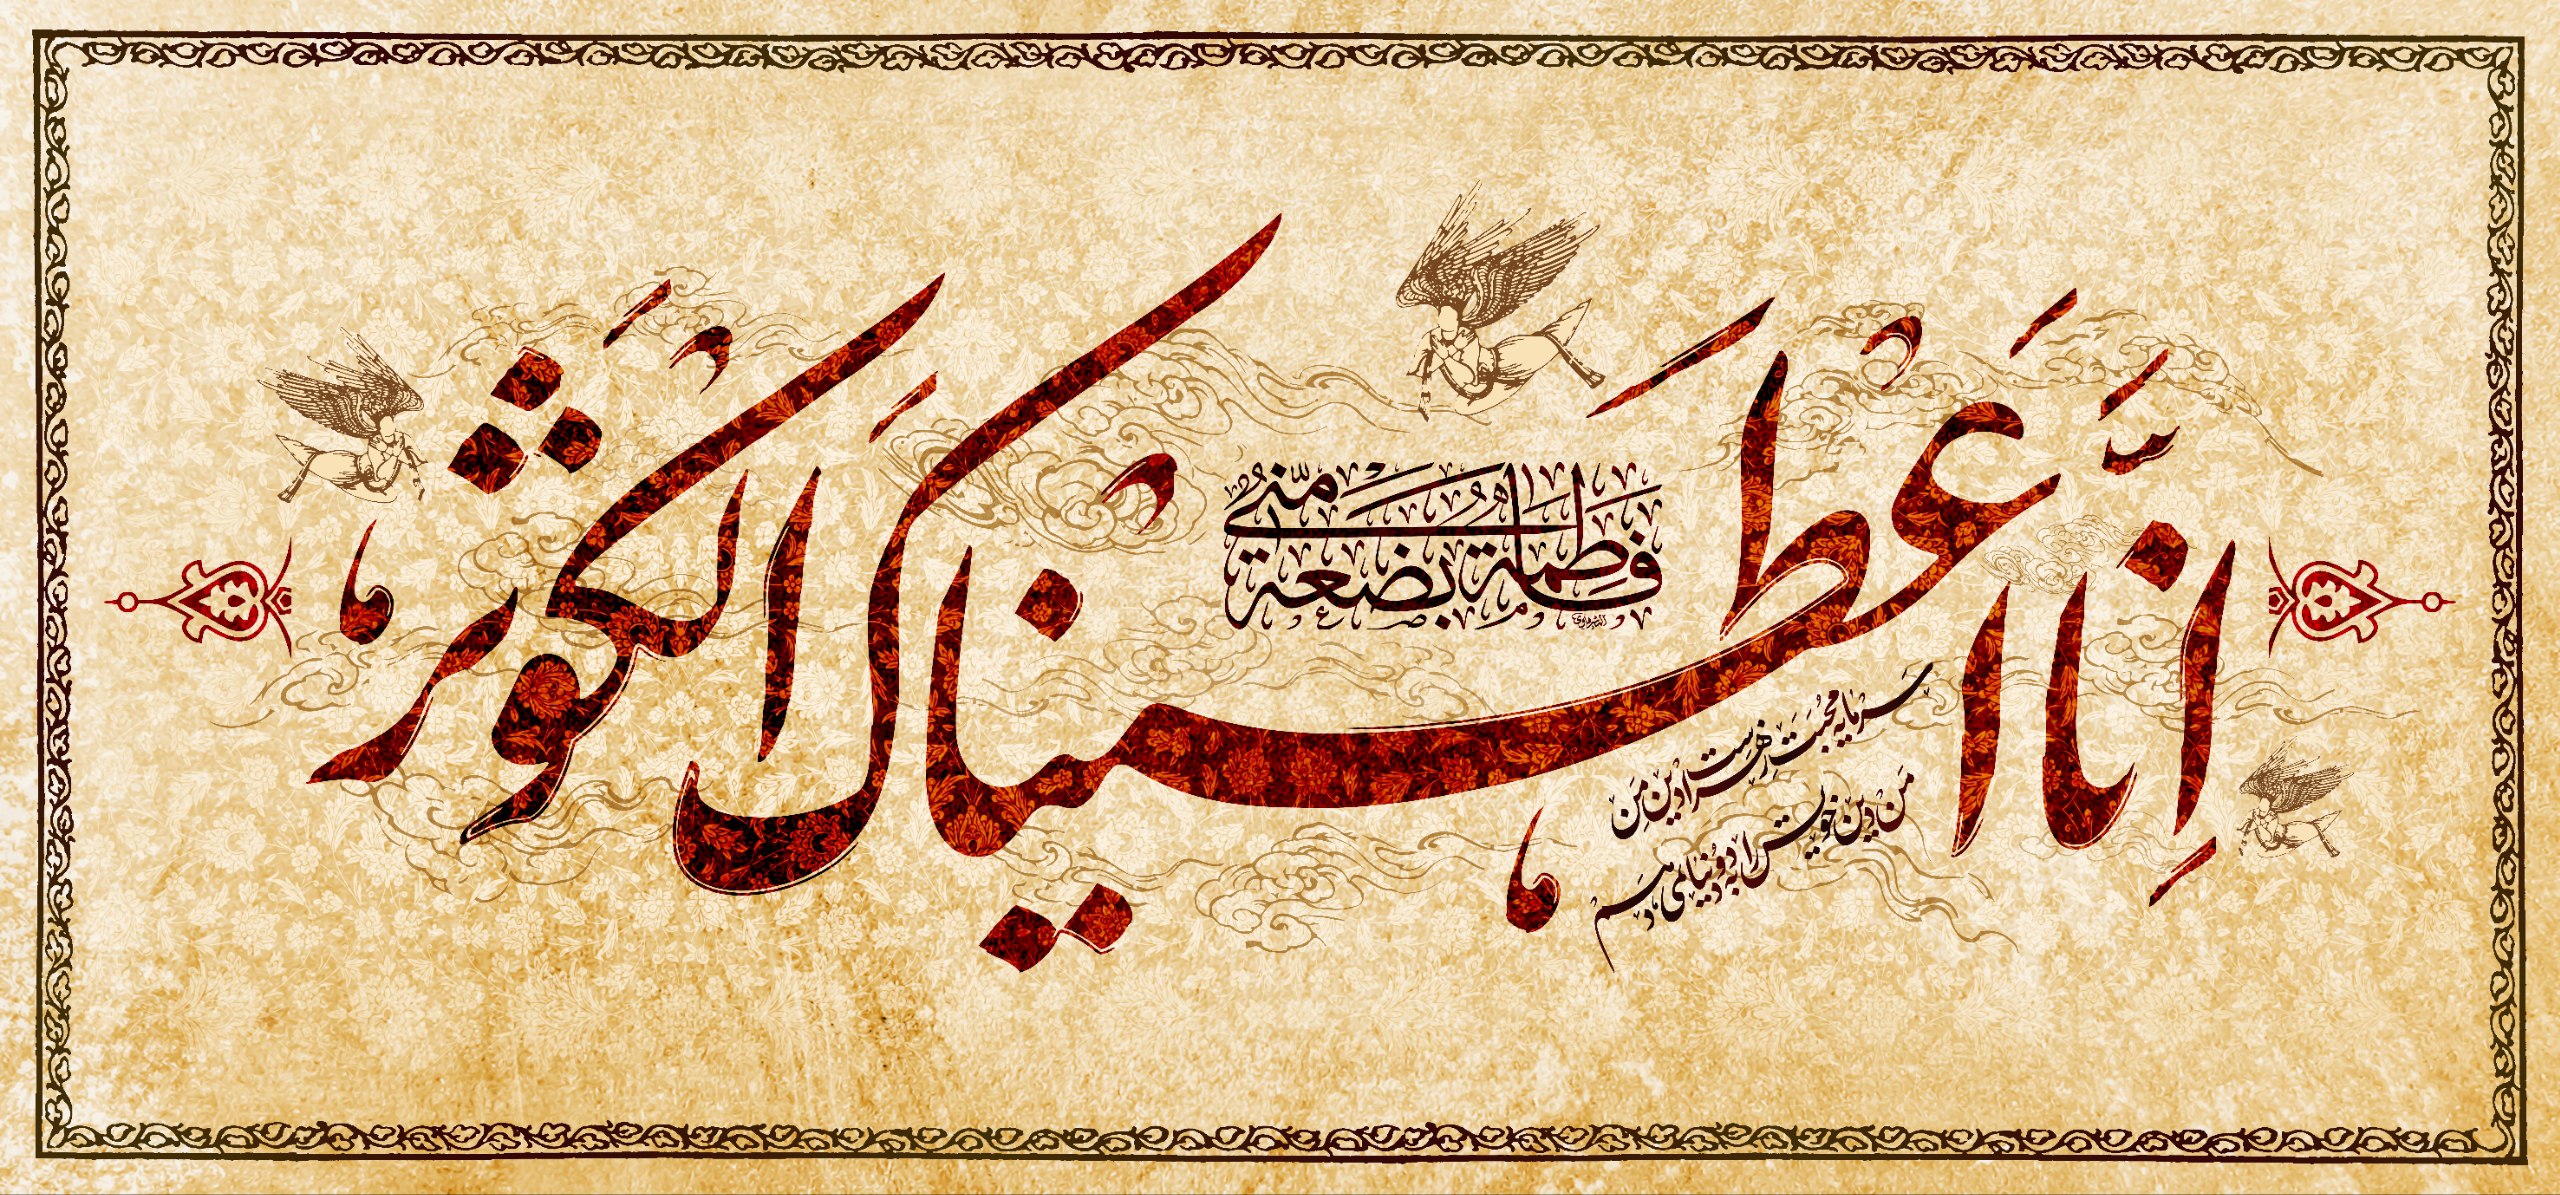 إِنَّا أَعْطَيْنَاكَ الْكَوْثَرَ
فَاطِمَةُ بَضْعَةٌ مِنّي
سرمایه محبت زهراست دین من
من دین خویش را به دو دنیا نمی‌دهم